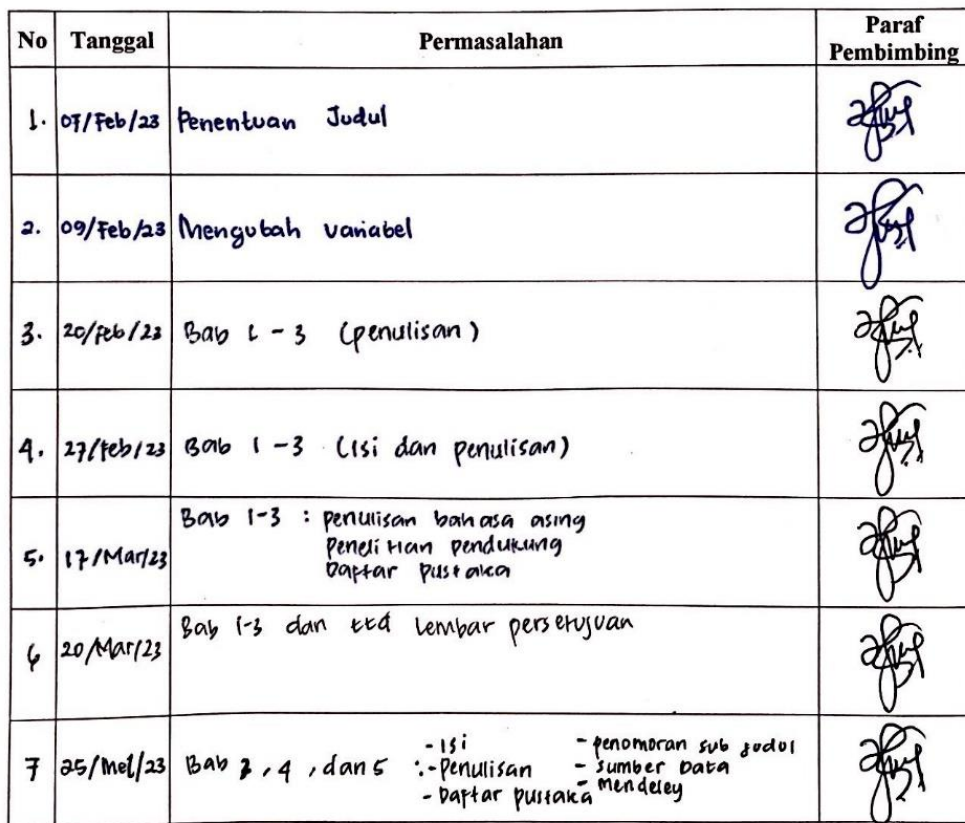 No Tanggal Permasalahan Paraf Pembimbing
1. 07/Feb/23 Penentuan Judul
2. 09/Feb/23 Mengubah variabel
3. 20/Feb/23 Bab 1 - 3 (penulisan)
4. 27/Feb/23 Bab 1 - 3 (Isi dan penulisan)
5. 17/Mar/23 Bab 1-3 : penulisan bahasa asing
penelitian pendukung
Daftar pustaka
6 20/Mar/23 Bab 1-3 dan ttd lembar persetujuan
7 25/Mei/23 Bab 3, 4, dan 5 : - Isi - penomoran sub judul
- Penulisan - sumber Data
- Daftar pustaka - mendeley